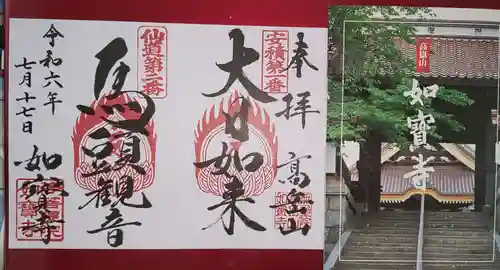 奉拝
安積第二番
大日如来
高岳山
仙道第二番
馬頭観音
令和六年
七月十七日
如寶寺
高嶽山
如寶寺